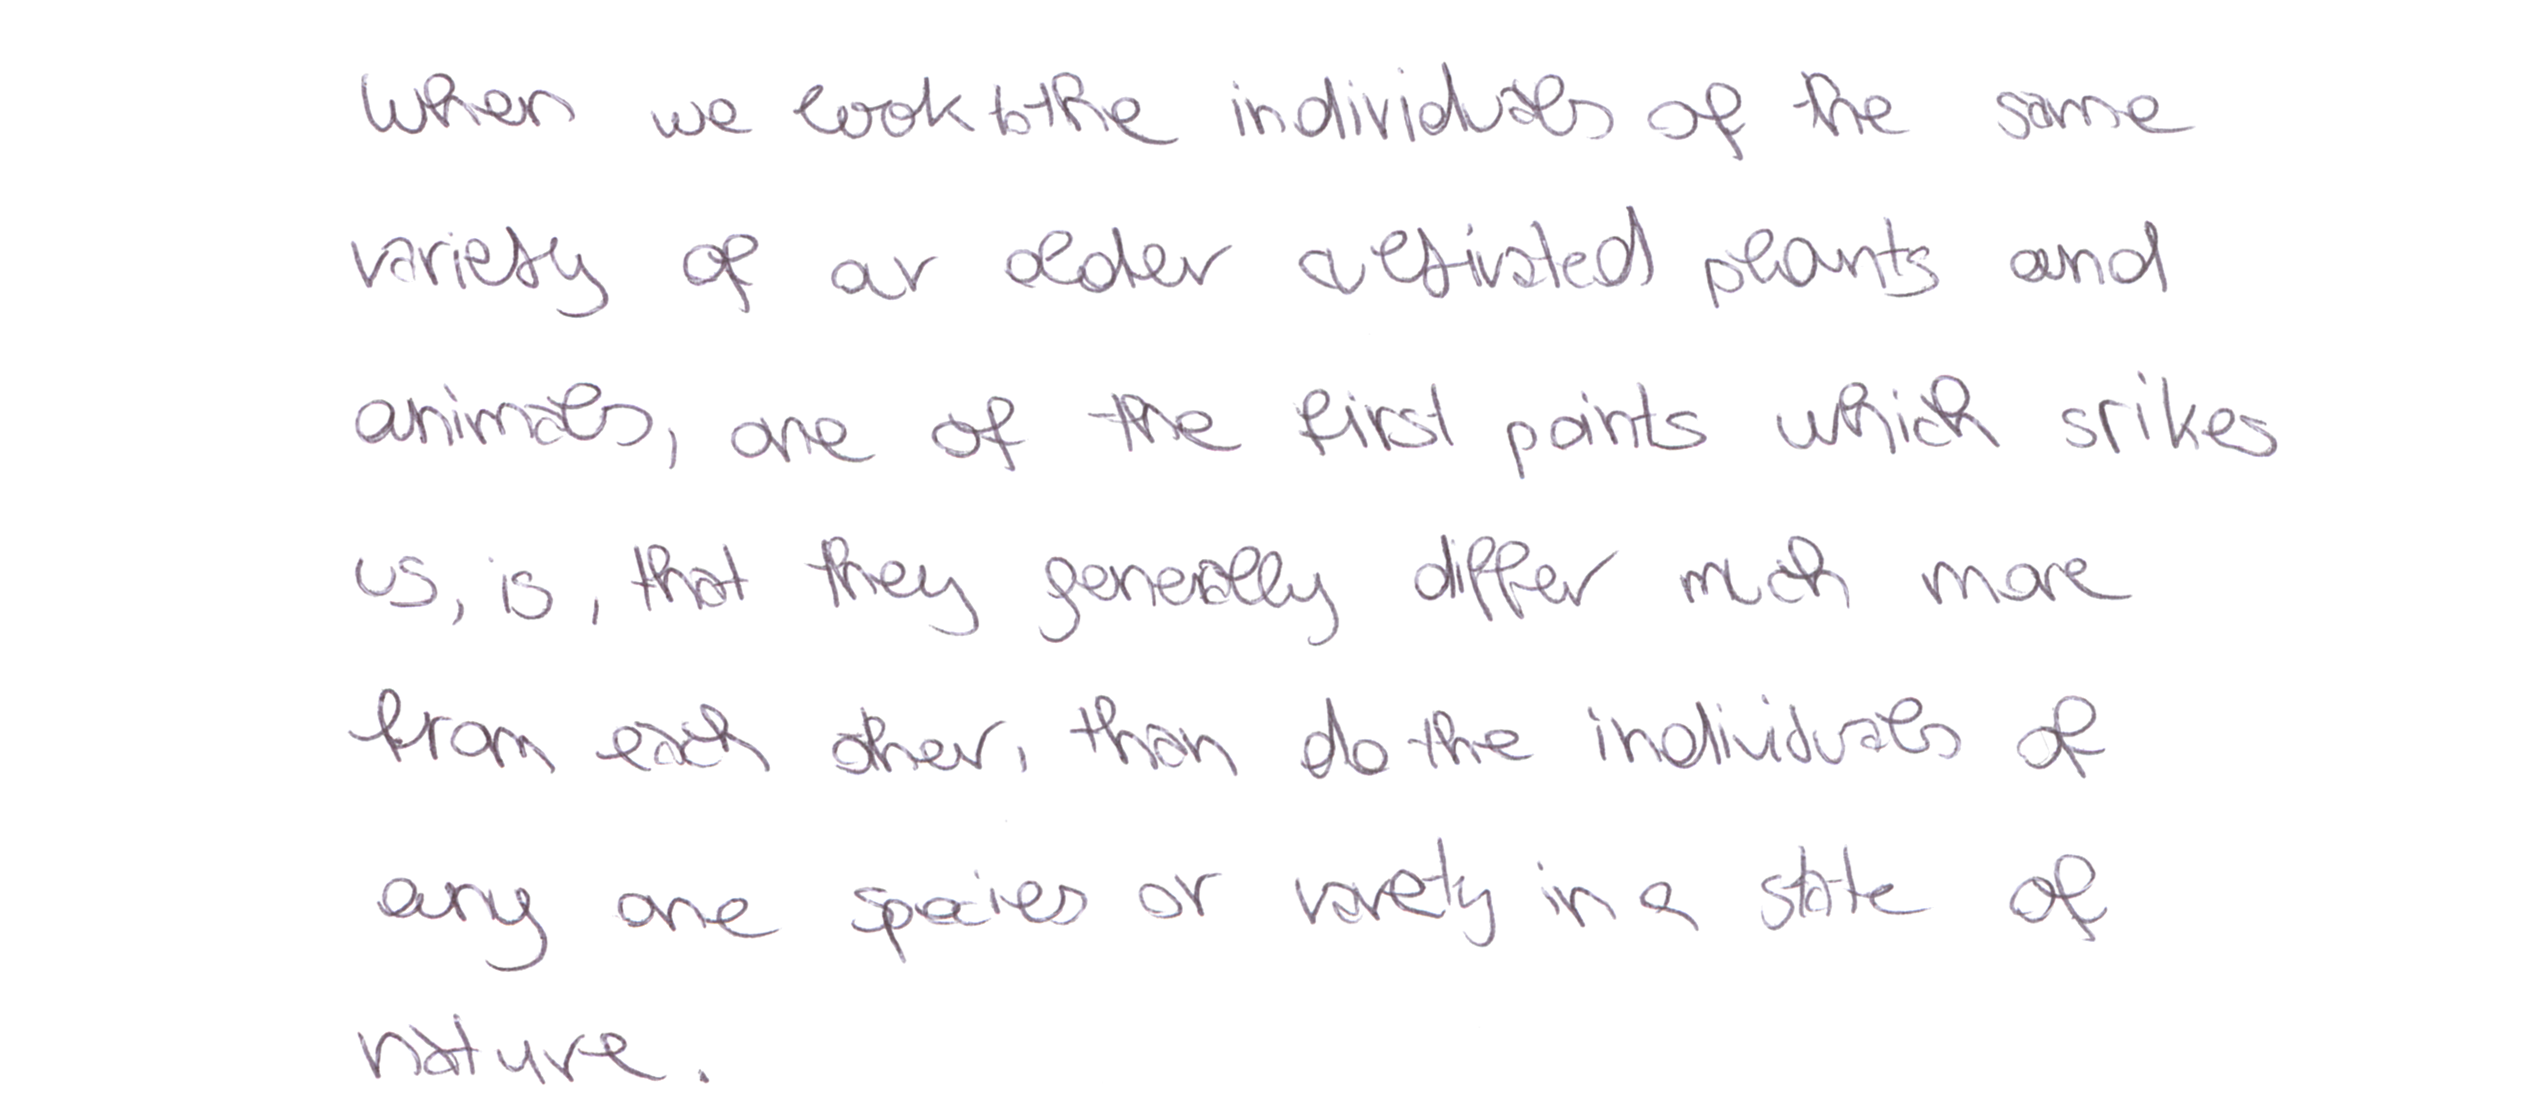 When we look to the individuals of the same
variety of our older cultivated plants and
animals, one of the first points which srikes
us, is, that they generally differ much more
from each other, than do the individuals of
any one species or variety in a state of
nature.